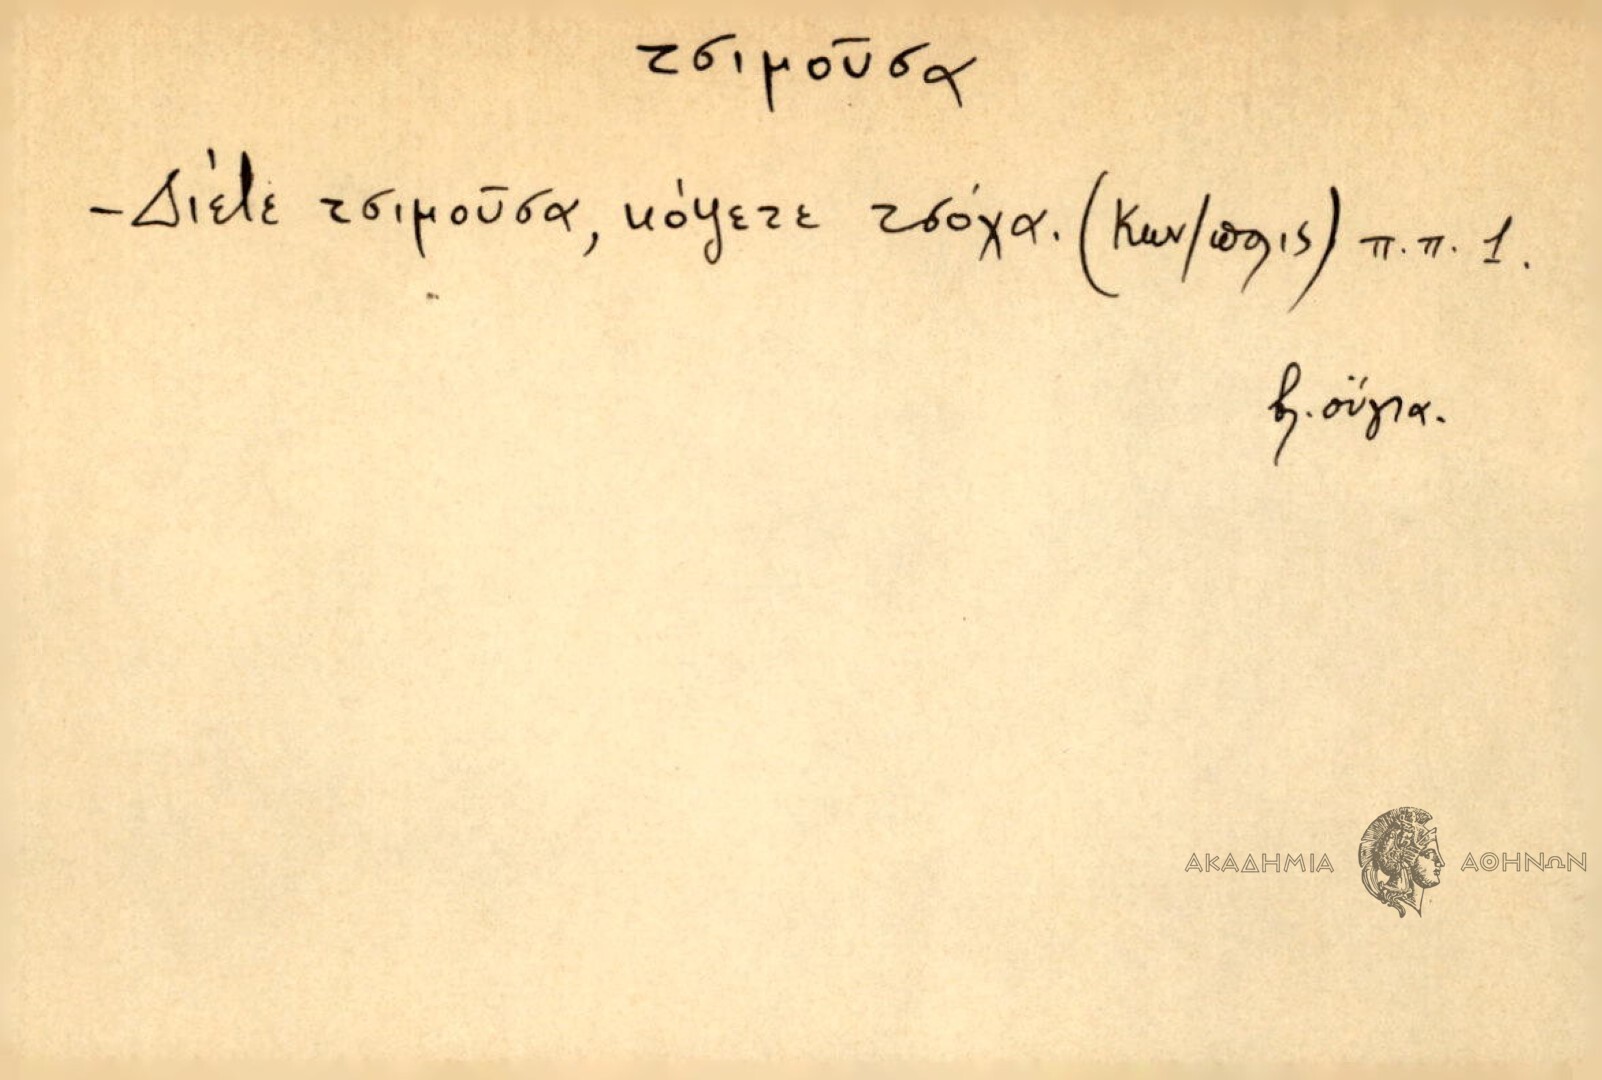 τσιμοῦσα
– Διέτε τσιμοῦσα, κόψετε τσόχα. (Κων/πολις) π.π. 1.
βλ. οὔγια.
ΑΚΑΔΗΜΙΑ ΑΘΗΝΩΝ